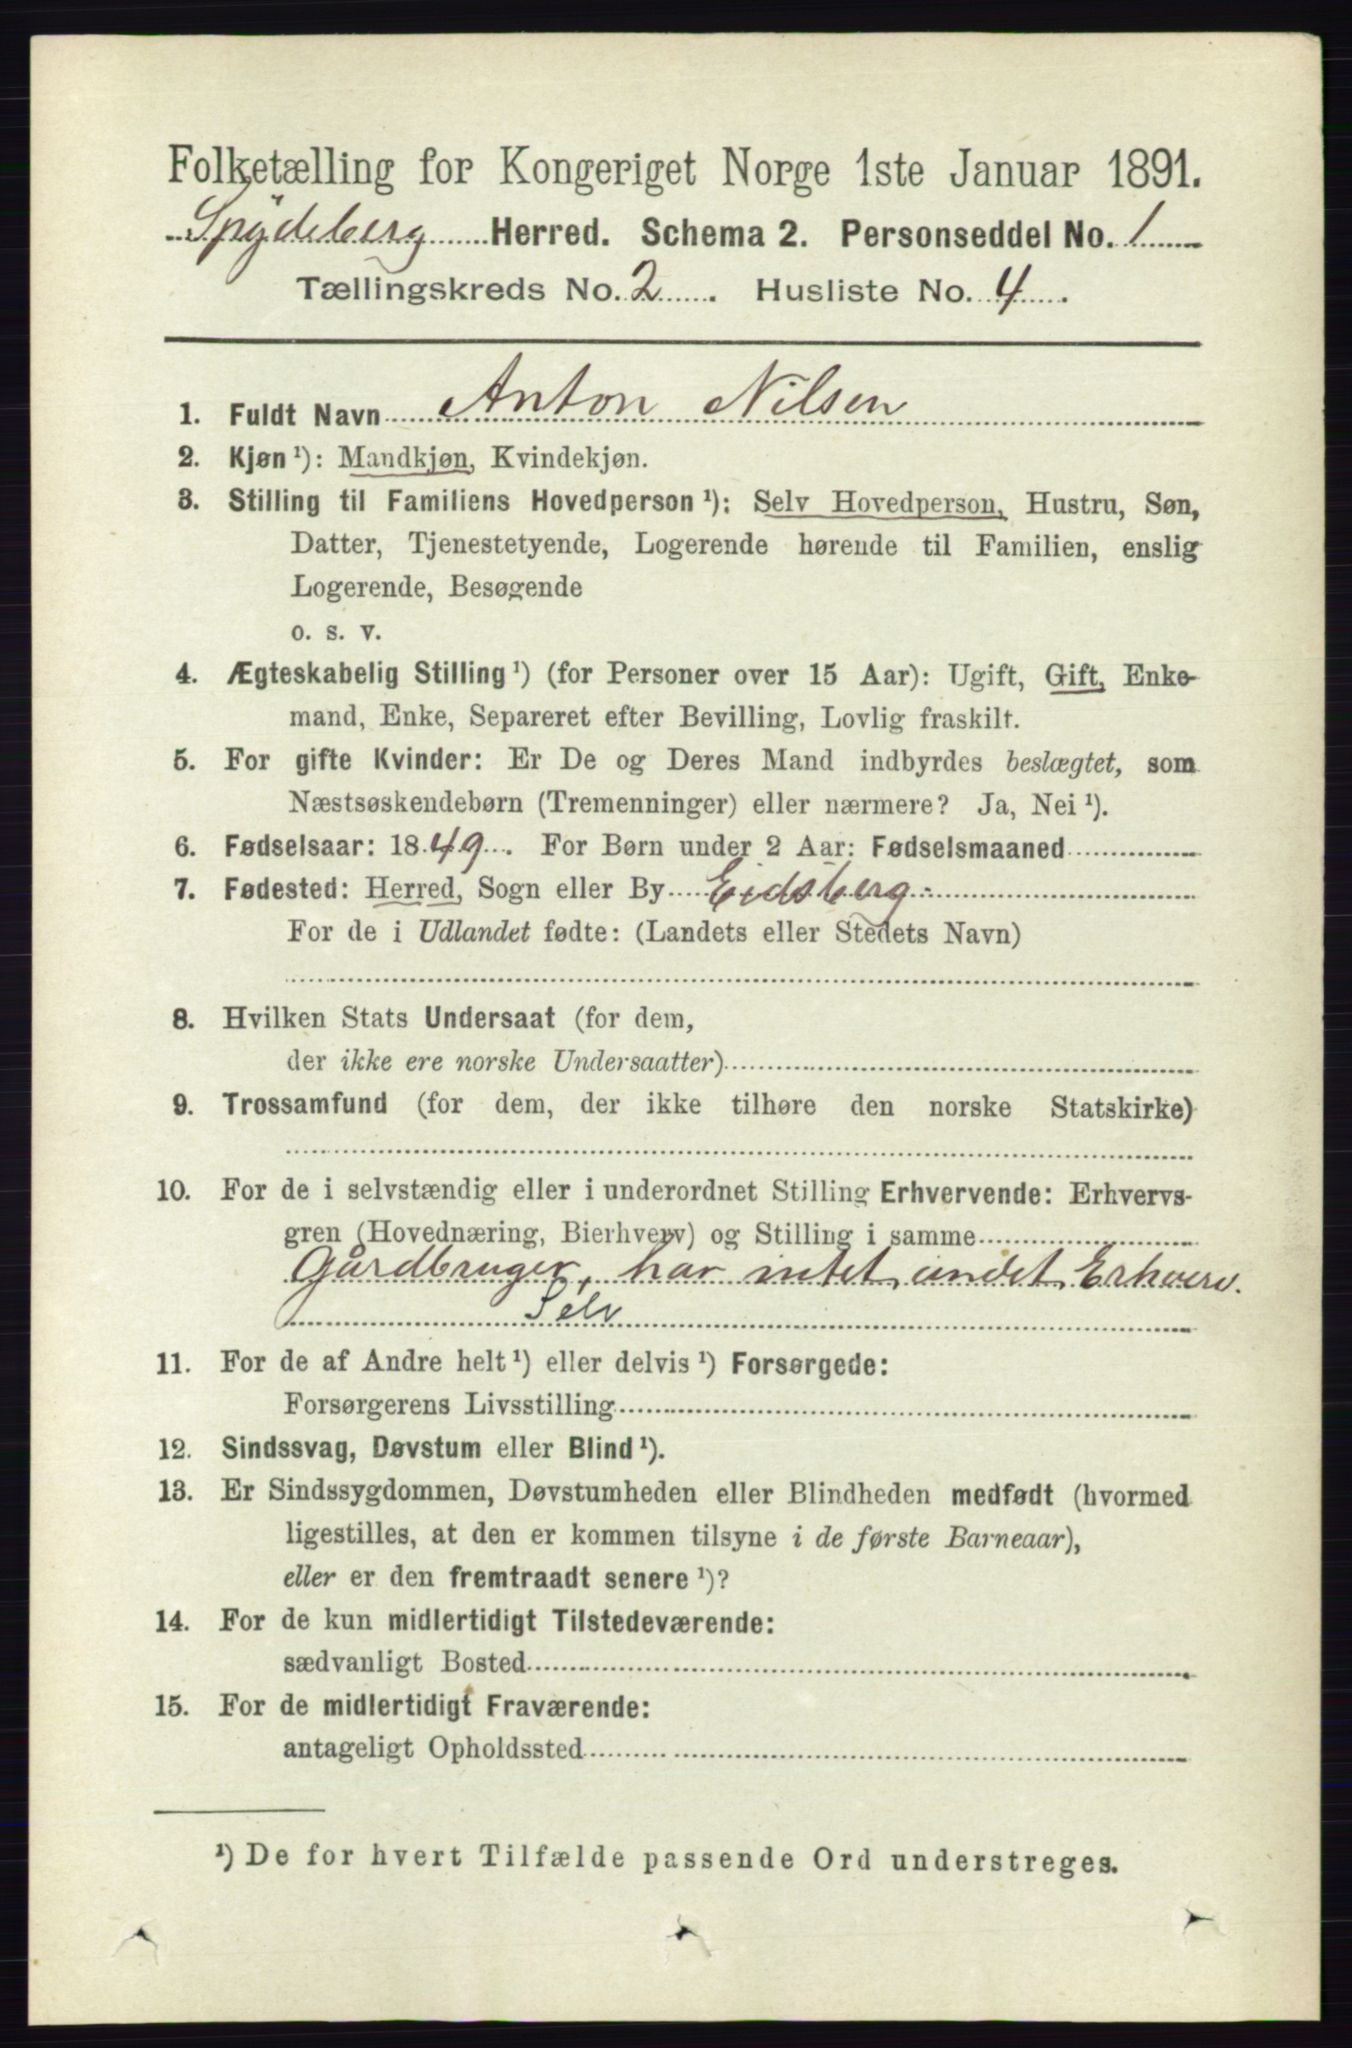 Folketælling for Kongeriget Norge 1ste Januar 1891.
Spydeberg Herred. Schema 2. Personseddel No. 1
Tællingskreds No. 2. Husliste No. 4.
1. Fuldt Navn Anton Nilsen
2. Kjøn ¹): Mandkjøn, Kvindekjøn.
3. Stilling til Familiens Hovedperson ¹): Selv Hovedperson, Hustru, Søn,
Datter, Tjenestetyende, Logerende hørende til Familien, enslig
Logerende, Besøgende
o. s. v.
4. Ægteskabelig Stilling ¹) (for Personer over 15 Aar): Ugift, Gift, Enke-
mand, Enke, Separeret efter Bevilling, Lovlig fraskilt.
5. For gifte Kvinder: Er De og Deres Mand indbyrdes beslægtet, som
Næstsøskendebørn (Tremenninger) eller nærmere? Ja, Nei ¹).
6. Fødselsaar: 1849. For Børn under 2 Aar: Fødselsmaaned
7. Fødested: Herred, Sogn eller By Eidsberg.
For de i Udlandet fødte: (Landets eller Stedets Navn)
8. Hvilken Stats Undersaat (for dem,
der ikke ere norske Undersaatter)
9. Trossamfund (for dem, der ikke tilhøre den norske Statskirke)
10. For de i selvstændig eller i underordnet Stilling Erhvervende: Erhvervs-
gren (Hovednæring, Bierhverv) og Stilling i samme
Gårdbruger, har intet andet Erhverv.
Selv
11. For de af Andre helt ¹) eller delvis ¹) Forsørgede:
Forsørgerens Livsstilling
12. Sindssvag, Døvstum eller Blind ¹).
13. Er Sindssygdommen, Døvstumheden eller Blindheden medfødt (hvormed
ligestilles, at den er kommen tilsyne i de første Barneaar),
eller er den fremtraadt senere ¹)?
14. For de kun midlertidigt Tilstedeværende:
sædvanligt Bosted
15. For de midlertidigt Fraværende:
antageligt Opholdssted
¹) De for hvert Tilfælde passende Ord understreges.